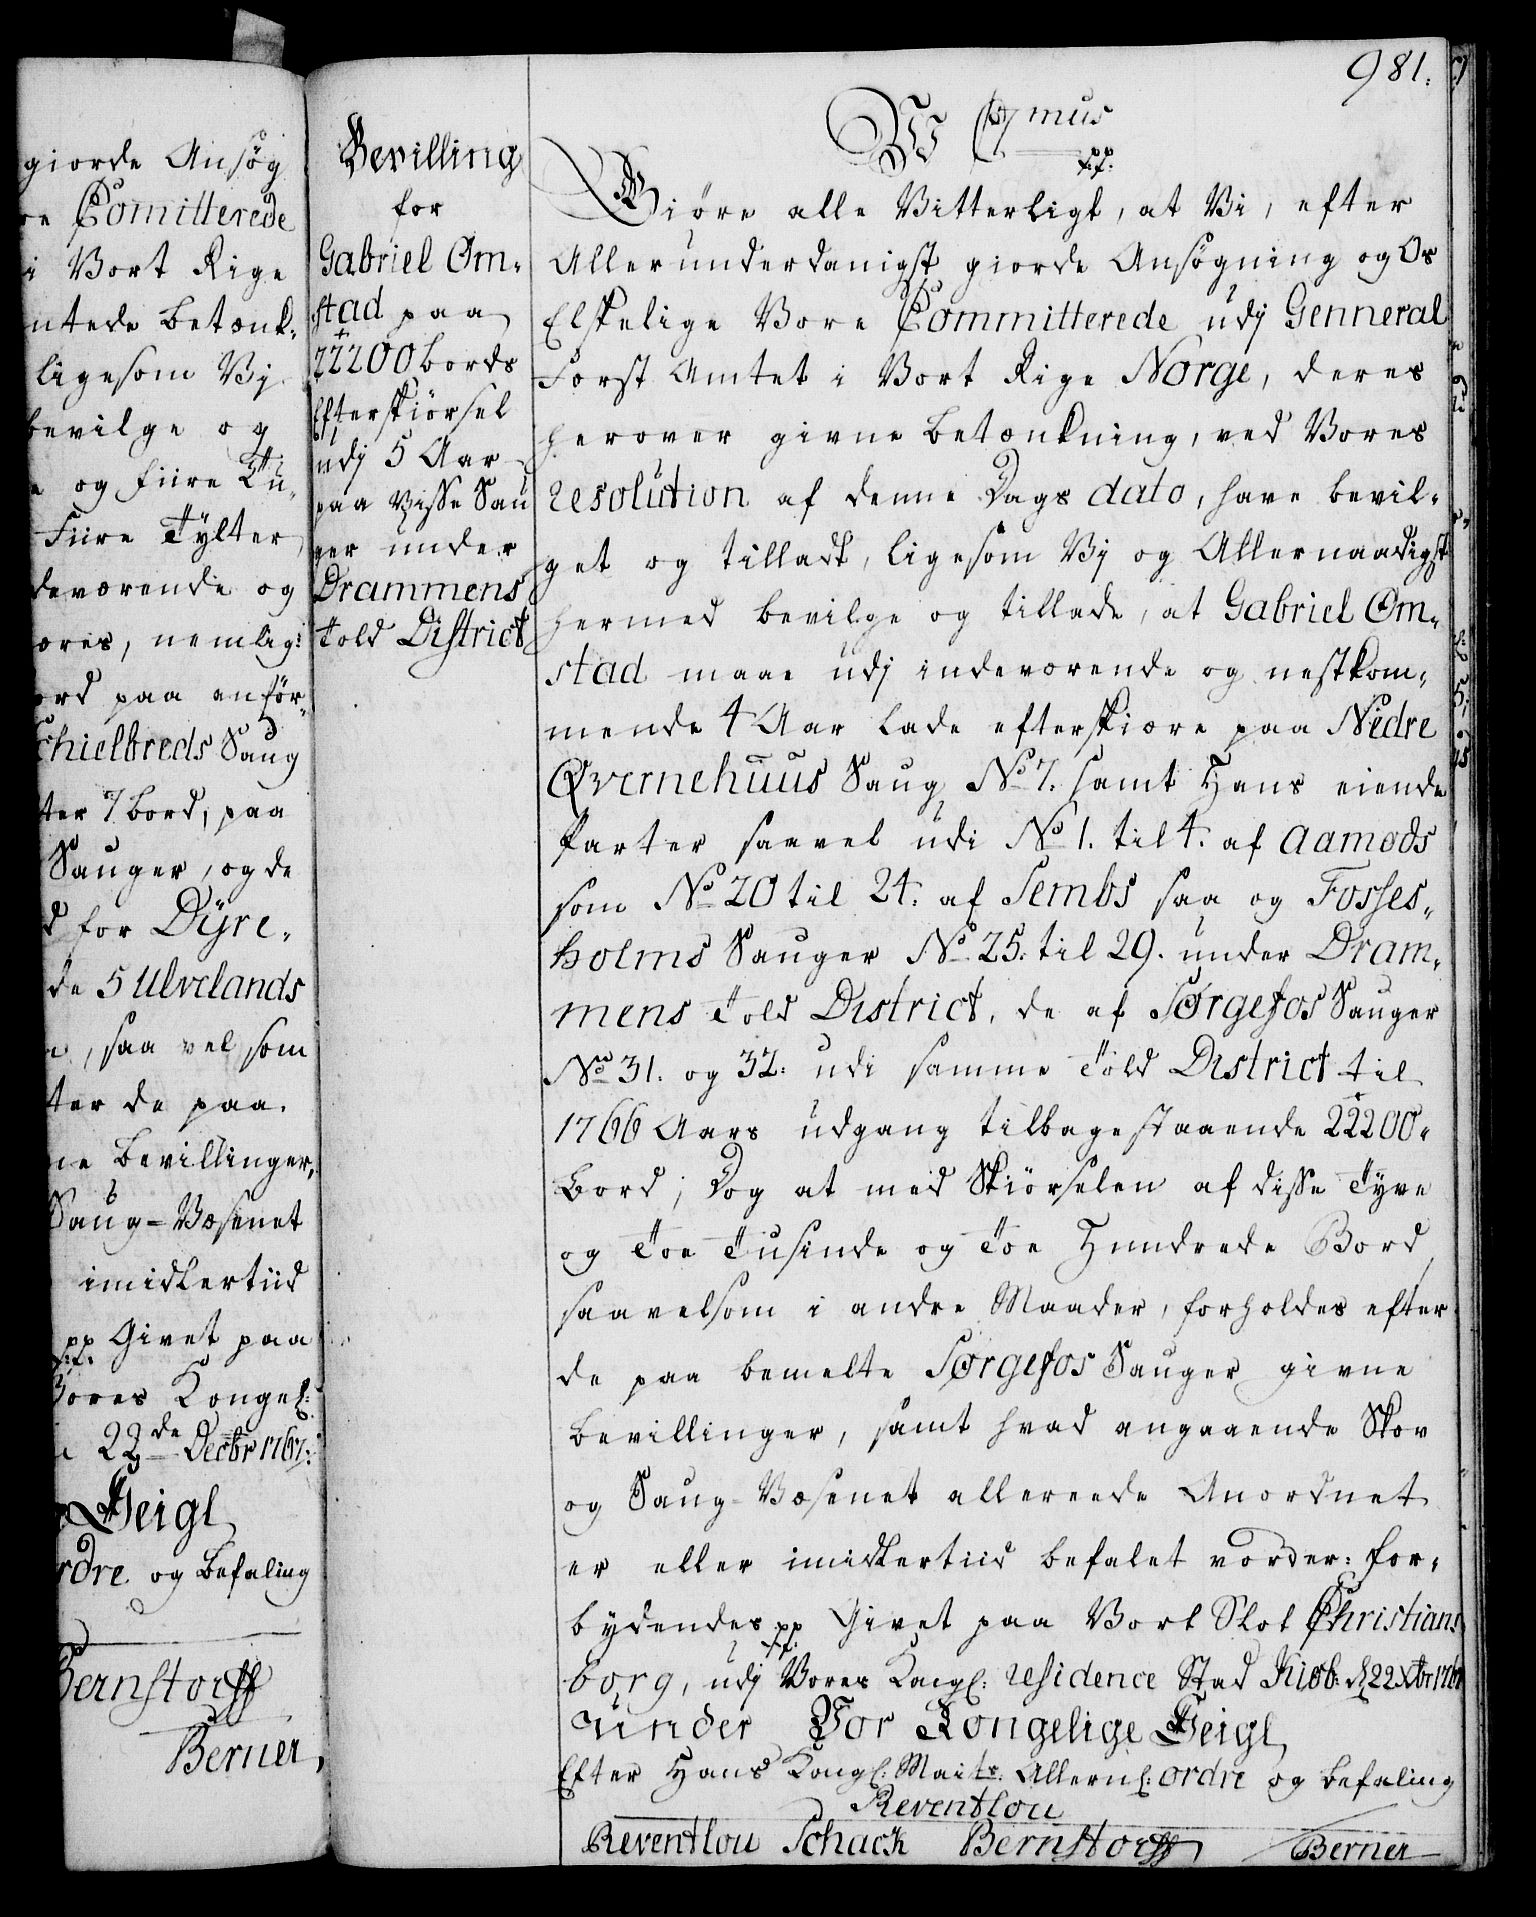 giorde Ansøg
re Comitterede
i Vort Rige
ntede Betænk¬
ligesom Vj
bevilge og
og fiire Tu¬
Fiire Tylter
deværende og
øres, nemlig:
ord paa anför¬
chielbreds Saug
ter 7 bord, paa
Sauger, og de
d for Dÿre¬
de 5 Ulvelands
, saa vel som
ter de paa
ne Bevillinger,
Saug-Væsenet
imidlertiid
pp Givet paa
Vores Kongel:
22de Decbr 1767:
Seigl
rdre og Befaling
Bernstorff
Berner,
981.
Bevilling
for
Gabriel Om¬
stad paa
22200 bords
Efterskiörsel
udj 5 Aar
paa Visse Sau
ger under
Drammens
Told District
W C7mus
pp
Giøre alle Vitterligt, at Vi, efter
Allerunderdanigst giorde Ansøgning og Os
Elskelige Vore Committerede udj Genneral
Forst Amtet i Vort Rige Norge, deres
herover givne Betænkning, ved Vores
resolution af denne Dags dato, have bevil¬
get og tilladt, ligesom Vj og Allernaadigst
hermed bevilge og tillade, at Gabriel Om¬
stad maae udj indeværende og nestkom¬
mende 4 Aar lade efterskiøre paa Nedre
Qvernehuus Saug No 7. samt Hans eiende
Parter saavel udi No 1. til 4. af Aamods
som No 20 til 24. af Sembs saa og Fosses¬
holms Sauger No 25. til 29. under Dram¬
mens Told District, de af Sørgefos Sauger
No 31. og 32. udi samme Told District til
1766 Aars udgang tilbagestaaende 22200¬
Bord; Dog at med Skiörselen af disse Tyve
og Toe Tusinde og Toe Hundrede Bord,
saavelsom i andre Maader, forholdes efter
de paa bemelte Sørgefos Sauger givne
Bevillinger, samt hvad angaaende Skov
og Saug-Væsenet allereede Anordnet
er eller imidlertiid befalet vorder: for¬
bydendes pp Givet paa Vort Slot Christians
borg, udj Vores Kongl: residence Stad Kiøb: d 22 Xbr 1767
under Vor Kongelige Seigl
Efter Hans Kongl: Maits. Allernl: ordre og Befaling
Reventlou
Reventlou Schack Bernstorff Berner